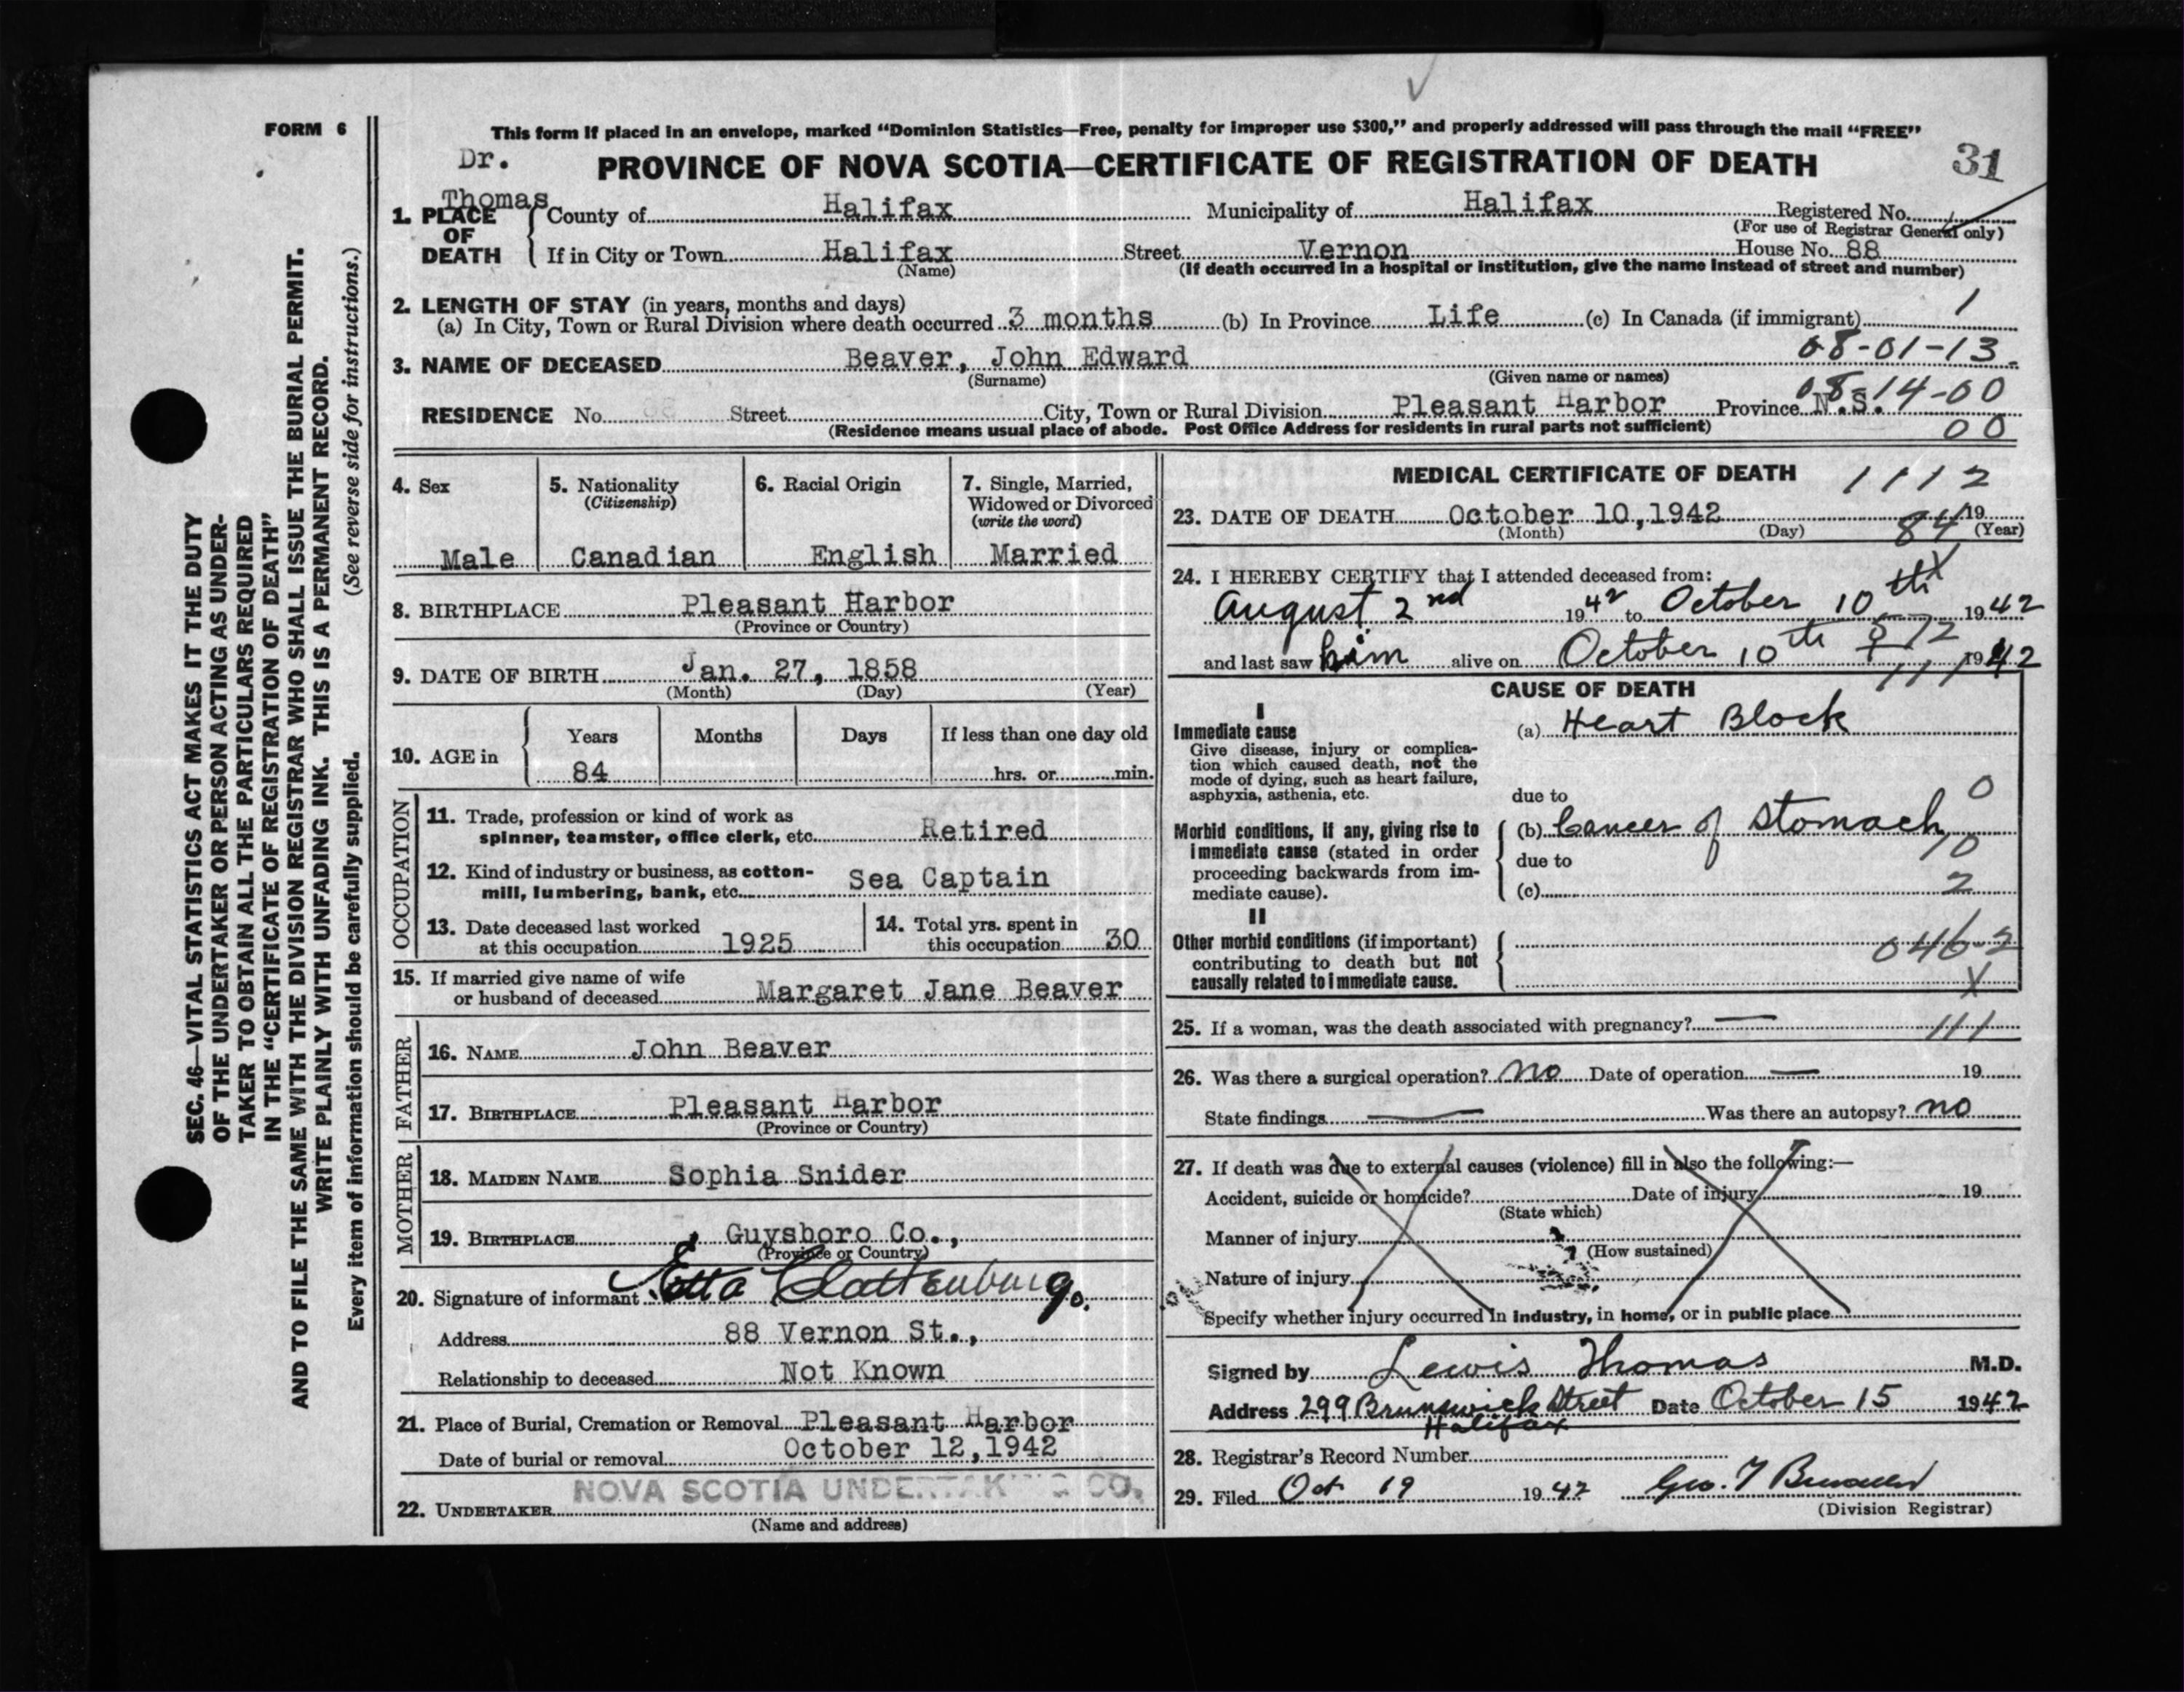 FORM 6
This form if placed in an envelope, marked “Dominion Statistics—Free, penalty for improper use $300,” and properly addressed will pass through the mail “FREE”
Dr. Thomas
PROVINCE OF NOVA SCOTIA—CERTIFICATE OF REGISTRATION OF DEATH 31
1. PLACE OF DEATH { County of Halifax Municipality of Halifax Registered No.
(For use of Registrar General only)
If in City or Town Halifax Street Vernon House No. 88
(Name) (If death occurred in a hospital or institution, give the name instead of street and number)
2. LENGTH OF STAY (in years, months and days) 1
(a) In City, Town or Rural Division where death occurred 3 months (b) In Province Life (c) In Canada (if immigrant)
08-01-13
3. NAME OF DECEASED Beaver, John Edward
(Surname) (Given name or names)
08-14-00
RESIDENCE No. 88 Street City, Town or Rural Division Pleasant Harbor Province N.S.
(Residence means usual place of abode. Post Office Address for residents in rural parts not sufficient) 00
4. Sex Male
5. Nationality (Citizenship) Canadian
6. Racial Origin English
7. Single, Married, Widowed or Divorced (write the word) Married
8. BIRTHPLACE Pleasant Harbor
(Province or Country)
9. DATE OF BIRTH Jan. 27, 1858
(Month) (Day) (Year)
10. AGE in { Years Months Days If less than one day old
84 hrs. or min.
OCCUPATION
11. Trade, profession or kind of work as
spinner, teamster, office clerk, etc. Retired
12. Kind of industry or business, as cotton-
mill, lumbering, bank, etc. Sea Captain
13. Date deceased last worked
at this occupation 1925
14. Total yrs. spent in
this occupation 30
15. If married give name of wife
or husband of deceased Margaret Jane Beaver
FATHER
16. NAME John Beaver
17. BIRTHPLACE Pleasant Harbor
(Province or Country)
MOTHER
18. MAIDEN NAME Sophia Snider
19. BIRTHPLACE Guysboro Co.,
(Province or Country)
20. Signature of informant Etta Clattenburg.
Address 88 Vernon St.,
Relationship to deceased Not Known
21. Place of Burial, Cremation or Removal Pleasant Harbor
Date of burial or removal October 12, 1942
NOVA SCOTIA UNDERTAKING CO.
22. UNDERTAKER
(Name and address)
MEDICAL CERTIFICATE OF DEATH 1112
23. DATE OF DEATH October 10, 1942 19
(Month) (Day) 84 (Year)
24. I HEREBY CERTIFY that I attended deceased from:
August 2nd 1942 to October 10th 1942
and last saw him alive on October 10th 1942
111
CAUSE OF DEATH
I
Immediate cause (a) Heart Block
Give disease, injury or complica-
tion which caused death, not the
mode of dying, such as heart failure,
asphyxia, asthenia, etc. due to 0
Morbid conditions, if any, giving rise to (b) Cancer of Stomach
immediate cause (stated in order due to 10
proceeding backwards from im-
mediate cause). (c) 2
II
Other morbid conditions (if important) 046-2
contributing to death but not
causally related to immediate cause. X
25. If a woman, was the death associated with pregnancy? — 111
26. Was there a surgical operation? no Date of operation — 19
State findings — Was there an autopsy? no
27. If death was due to external causes (violence) fill in also the following:—
Accident, suicide or homicide? Date of injury 19
(State which)
Manner of injury
(How sustained)
Nature of injury
Specify whether injury occurred in industry, in home, or in public place
Signed by Lewis Thomas M.D.
Address 299 Brunswick Street Date October 15 1942
Halifax
28. Registrar's Record Number
29. Filed Oct 19 1942 Geo. T
(Division Registrar)
SEC. 46—VITAL STATISTICS ACT MAKES IT THE DUTY
OF THE UNDERTAKER OR PERSON ACTING AS UNDER-
TAKER TO OBTAIN ALL THE PARTICULARS REQUIRED
IN THE “CERTIFICATE OF REGISTRATION OF DEATH”
AND TO FILE THE SAME WITH THE DIVISION REGISTRAR WHO SHALL ISSUE THE BURIAL PERMIT.
WRITE PLAINLY WITH UNFADING INK. THIS IS A PERMANENT RECORD.
Every item of information should be carefully supplied. (See reverse side for instructions.)